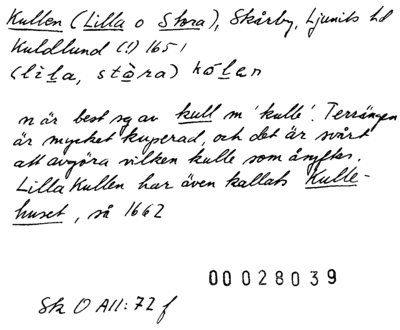 Kullen (Lilla o Stora), Skårby, Ljunits hd
Kuldlund (!) 1651
(lìla, stòra) kólen
n är best sg av kull m 'kulle'. Terrängen
är mycket kuperad, och det är svårt
att avgöra vilken kulle som åsyftas.
Lilla Kullen har även kallats Kulle-
huset, så 1662
00028039
Sk O All: 72 f